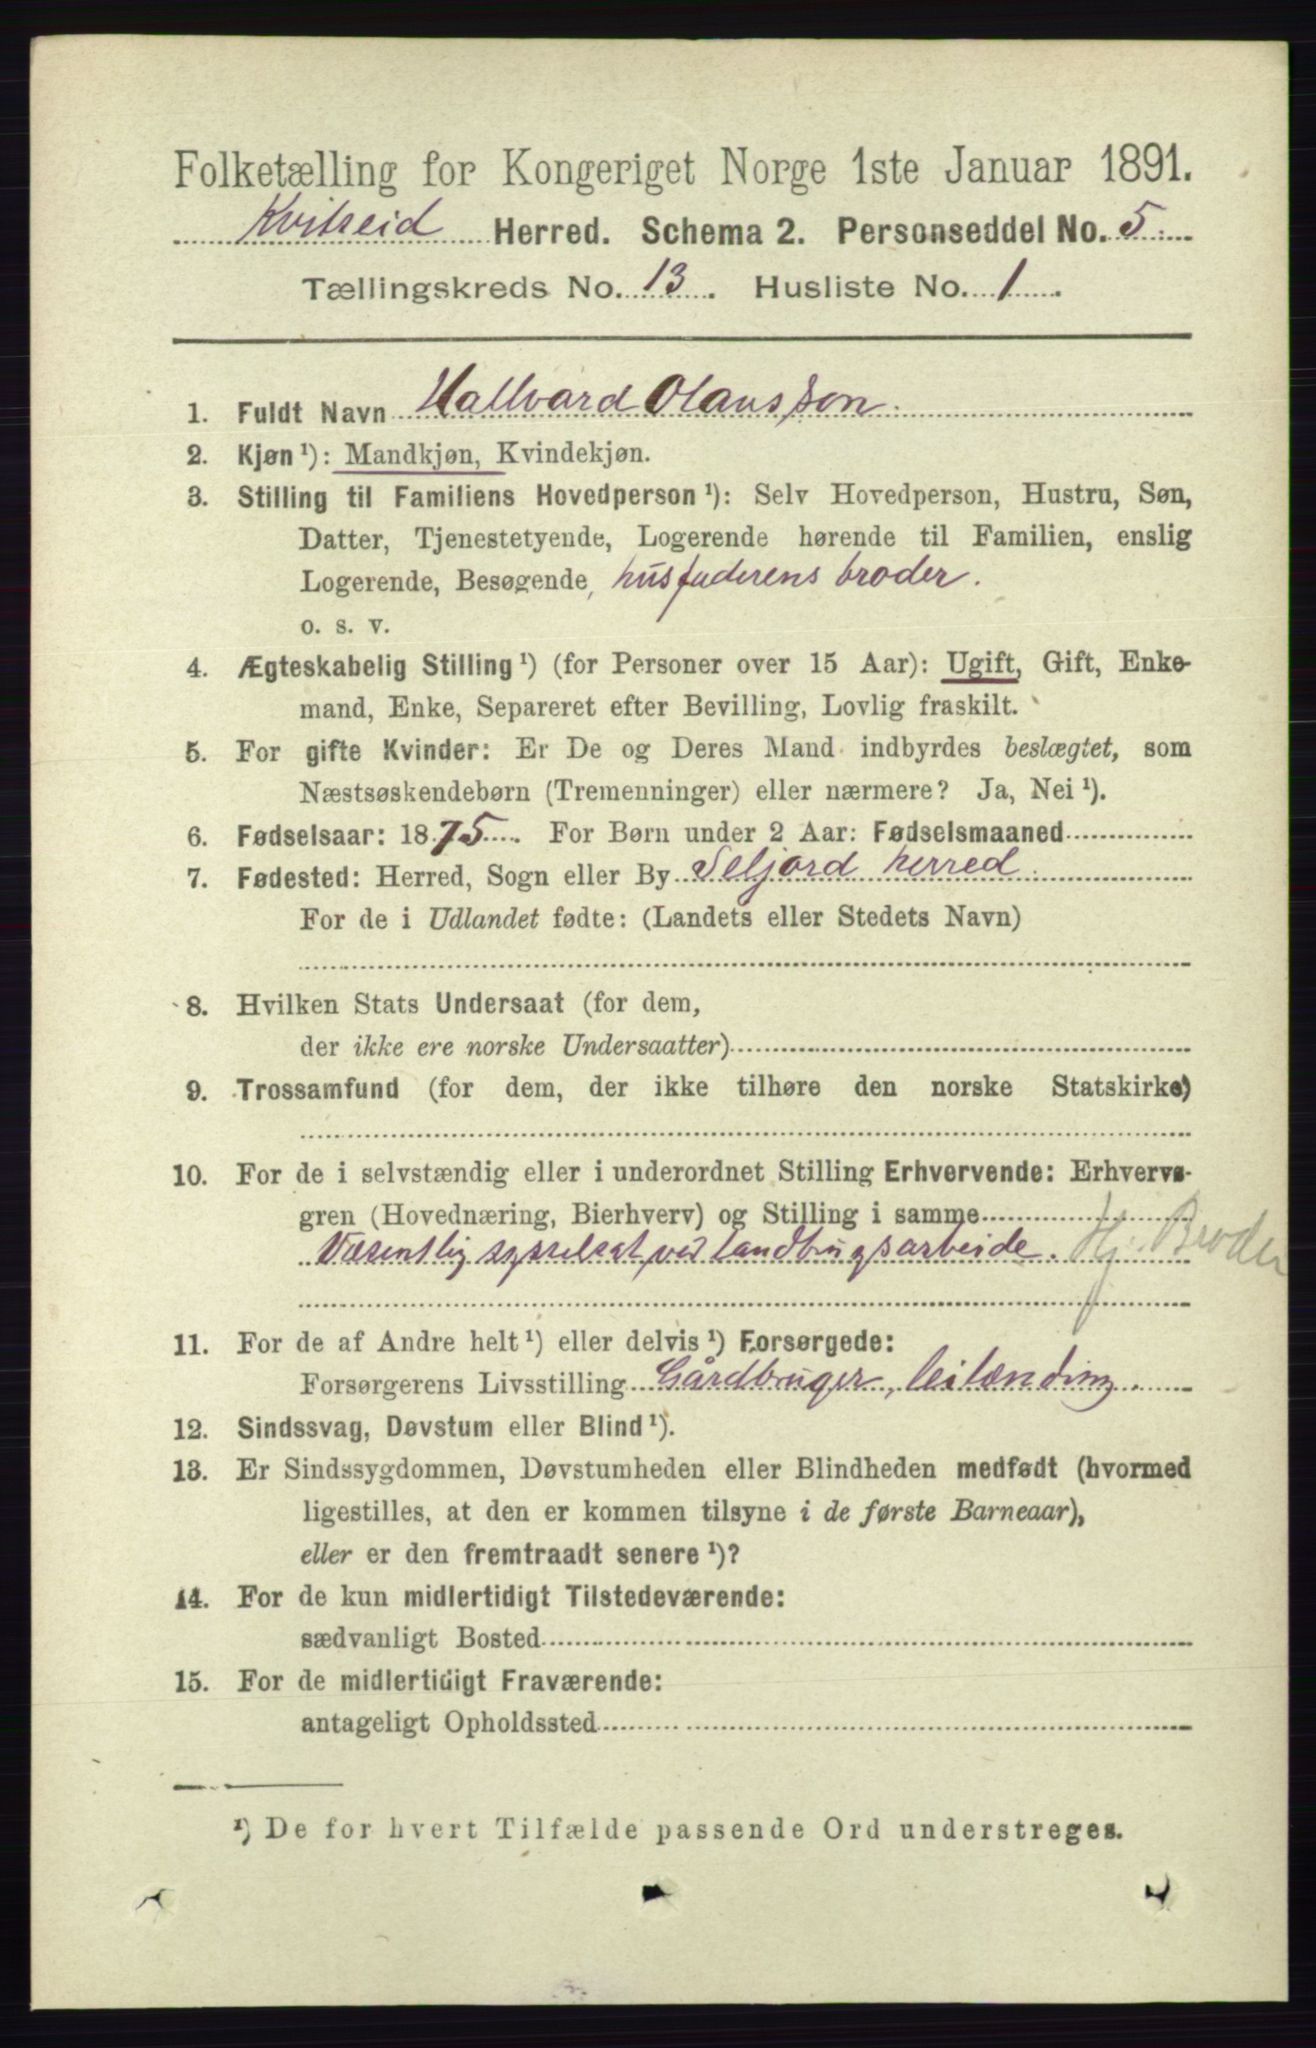 Folketælling for Kongeriget Norge 1ste Januar 1891.
Kvitseid Herred. Schema 2. Personseddel No. 5
Tællingskreds No. 13. Husliste No. 1.
1. Fuldt Navn Hallvard Olansson.
2. Kjøn ¹): Mandkjøn, Kvindekjøn.
3. Stilling til Familiens Hovedperson ¹): Selv Hovedperson, Hustru, Søn,
Datter, Tjenestetyende, Logerende hørende til Familien, enslig
Logerende, Besøgende, husfaderens broder.
o. s. v.
4. Ægteskabelig Stilling ¹) (for Personer over 15 Aar): Ugift, Gift, Enke-
mand, Enke, Separeret efter Bevilling, Lovlig fraskilt.
5. For gifte Kvinder: Er De og Deres Mand indbyrdes beslægtet, som
Næstsøskendebørn (Tremenninger) eller nærmere? Ja, Nei ¹).
6. Fødselsaar: 1875. For Børn under 2 Aar: Fødselsmaaned
7. Fødested: Herred, Sogn eller By Seljord herred.
For de i Udlandet fødte: (Landets eller Stedets Navn)
8. Hvilken Stats Undersaat (for dem,
der ikke ere norske Undersaatter)
9. Trossamfund (for dem, der ikke tilhøre den norske Statskirke)
10. For de i selvstændig eller i underordnet Stilling Erhvervende: Erhvervs-
gren (Hovednæring, Bierhverv) og Stilling i samme
Væsentlig sysselsat ved landbrugsarbeide. Hj. Broder
11. For de af Andre helt ¹) eller delvis ¹) Forsørgede:
Forsørgerens Livsstilling Gårdbruger, leilænding.
12. Sindssvag, Døvstum eller Blind ¹).
13. Er Sindssygdommen, Døvstumheden eller Blindheden medfødt (hvormed
ligestilles, at den er kommen tilsyne i de første Barneaar),
eller er den fremtraadt senere ¹)?
14. For de kun midlertidigt Tilstedeværende:
sædvanligt Bosted
15. For de midlertidigt Fraværende:
antageligt Opholdssted
¹) De for hvert Tilfælde passende Ord understreges.